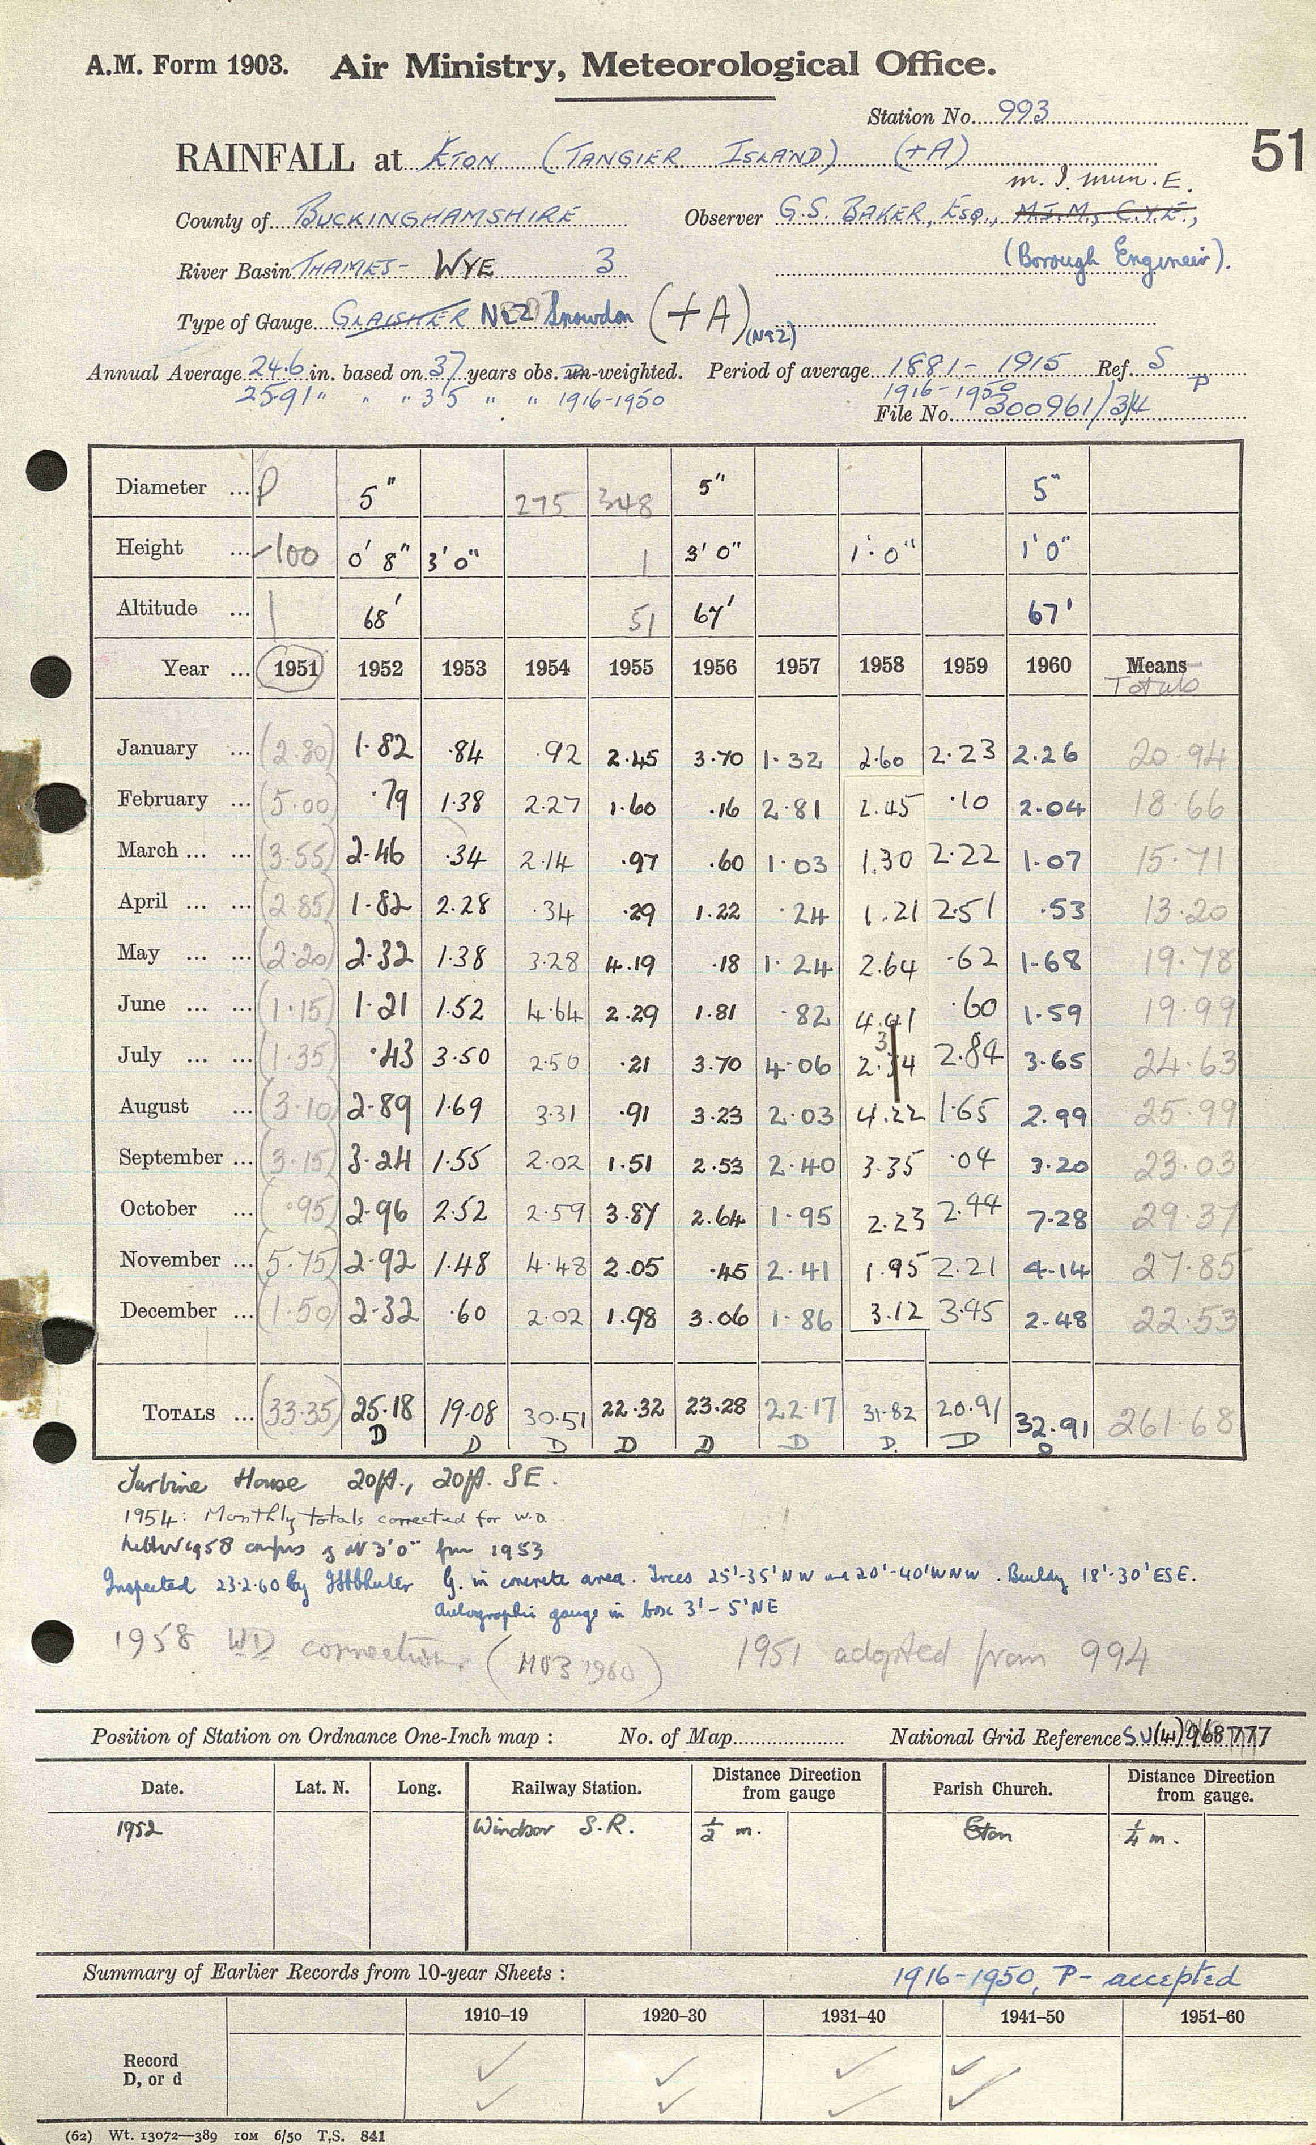 A.M. Form 1903. Air Ministry, Meteorological Office.
Station No. 993
51
RAINFALL at ETON (TANGIER ISLAND) (+A)
M. I. Mun. E.
County of BUCKINGHAMSHIRE Observer G.S. BAKER, ESQ., M.I.M., C.Y.E.,
River Basin THAMES - WYE 3 (Borough Engineer).
Type of Gauge GLAISHER No2 Snowdon (+A) (No2)
Annual Average 24.6 in. based on 37 years obs. un-weighted. Period of average 1881-1915 Ref. S
25.91 " " " 35 " " 1916-1950 1916-1950 P
File No. 300961/3/4
Diameter ... P 5" 275 348 5" 5"
Height ... 100 0' 8" 3' 0" 1 3' 0" 1' 0" 1' 0"
Altitude ... 68' 51 67' 67'
Year ... 1951 1952 1953 1954 1955 1956 1957 1958 1959 1960 Means
Totals
January ... (2.80) 1.82 .84 .92 2.45 3.70 1.32 2.60 2.23 2.26 20.94
February ... (5.00) .79 1.38 2.27 1.60 .16 2.81 2.45 .10 2.04 18.66
March ... ... (3.55) 2.46 .34 2.14 .97 .60 1.03 1.30 2.22 1.07 15.71
April ... ... (2.85) 1.82 2.28 .34 .29 1.22 .24 1.21 2.51 .53 13.20
May ... ... (2.20) 2.32 1.38 3.28 4.19 .18 1.24 2.64 .62 1.68 19.78
June ... ... (1.15) 1.21 1.52 4.64 2.29 1.81 .82 4.41 .60 1.59 19.99
July ... ... (1.35) .43 3.50 2.50 .21 3.70 4.06 2.34 2.84 3.65 24.63
August ... (3.10) 2.89 1.69 3.31 .91 3.23 2.03 4.22 1.65 2.99 25.99
September ... (3.15) 3.24 1.55 2.02 1.51 2.53 2.40 3.35 .04 3.20 23.03
October ... (.95) 2.96 2.52 2.59 3.87 2.64 1.95 2.23 2.44 7.28 29.37
November ... (5.75) 2.92 1.48 4.48 2.05 .45 2.41 1.95 2.21 4.14 27.85
December ... (1.50) 2.32 .60 2.02 1.98 3.06 1.86 3.12 3.45 2.48 22.53
TOTALS ... (33.35) 25.18 19.08 30.51 22.32 23.28 22.17 31.82 20.91 32.91 261.68
D D D D D D D. D D
Turbine House 20ft., 20ft. SE.
1954: Monthly totals corrected for W.D.
1958 3'0" from 1953
Inspected 23.2.60 by G. in concrete area. Trees 25'-35'NW and 20'-40'WNW. Building 18'-30'ESE.
Autographic gauge in box 3'-5'NE
1958 WD correction. (MO3 1960) 1951 adopted from 994
Position of Station on Ordnance One-Inch map : No. of Map National Grid Reference SU(41)968777
Date. Lat. N. Long. Railway Station. Distance Direction from gauge Parish Church. Distance Direction from gauge.
1952 Windsor S.R. ½ m. Eton ¼ m.
Summary of Earlier Records from 10-year Sheets : 1916-1950, P- accepted
1910–19 1920–30 1931–40 1941–50 1951–60
Record
D, or d
(62) Wt. 13072—389 10M 6/50 T.S. 841